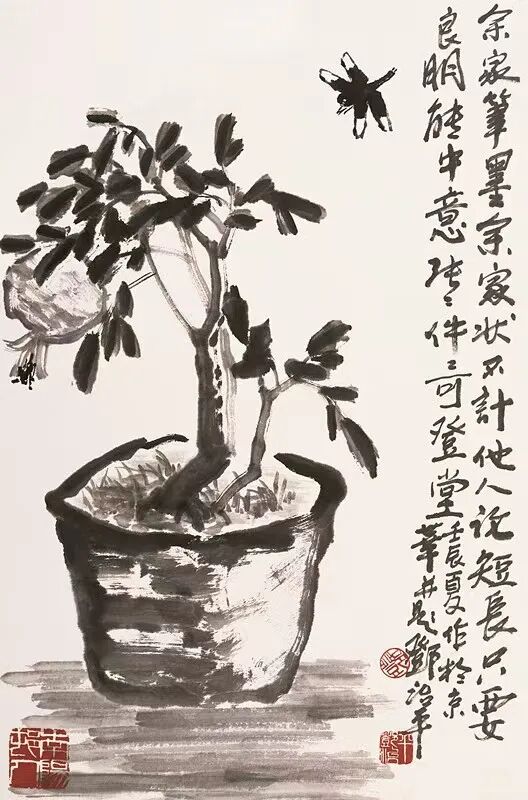 余家筆墨余家状不計他人说短長只要
良朋能中意張〻件〻可登堂壬辰夏作於京
華並題鄧治平